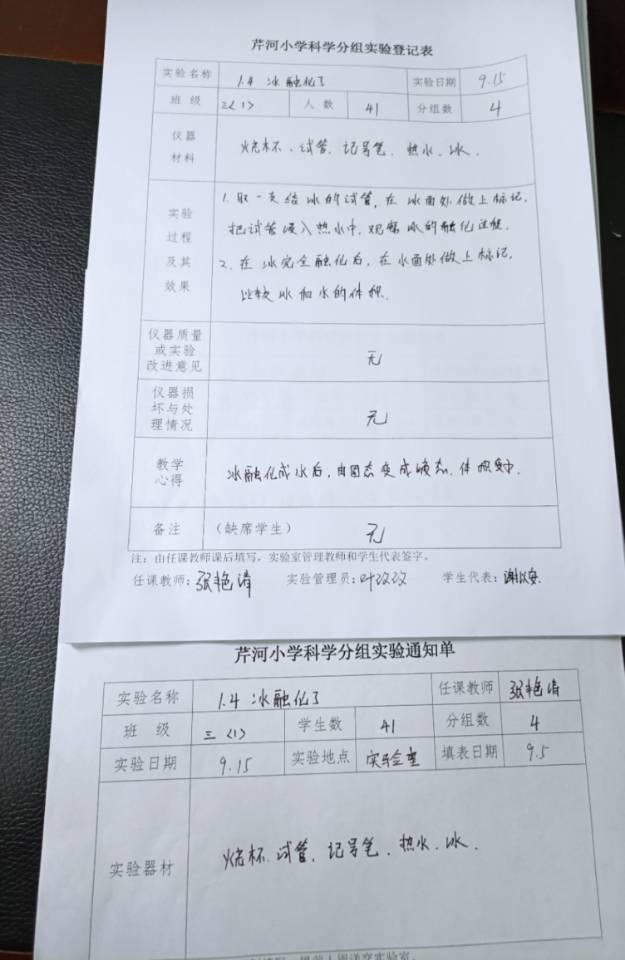 芹河小学科学分组实验登记表
实验名称 1.4 冰融化了 实验日期 9.15
班 级 三〈1〉 人 数 41 分组数 4
仪器材料 烧杯、试管、记号笔、热水、冰.
实验过程及其效果
1. 取一支结冰的试管,在冰面处做上标记.
把试管浸入热水中,观察冰的融化过程.
2. 在冰完全融化后,在水面处做上标记,
比较冰和水的体积.
仪器质量或实验改进意见 无
仪器损坏与处理情况 无
教学心得 冰融化成水后,由固态变成液态.体积变小.
备注 (缺席学生) 无
注:由任课教师课后填写,实验室管理教师和学生代表签字。
任课教师:张艳 实验管理员:叶 学生代表:谢
芹河小学科学分组实验通知单
实验名称 1.4 冰融化了 任课教师 张艳
班 级 三〈1〉 学生数 41 分组数 4
实验日期 9.15 实验地点 实验室 填表日期 9.5
实验器材 烧杯.试管.记号笔.热水.冰.